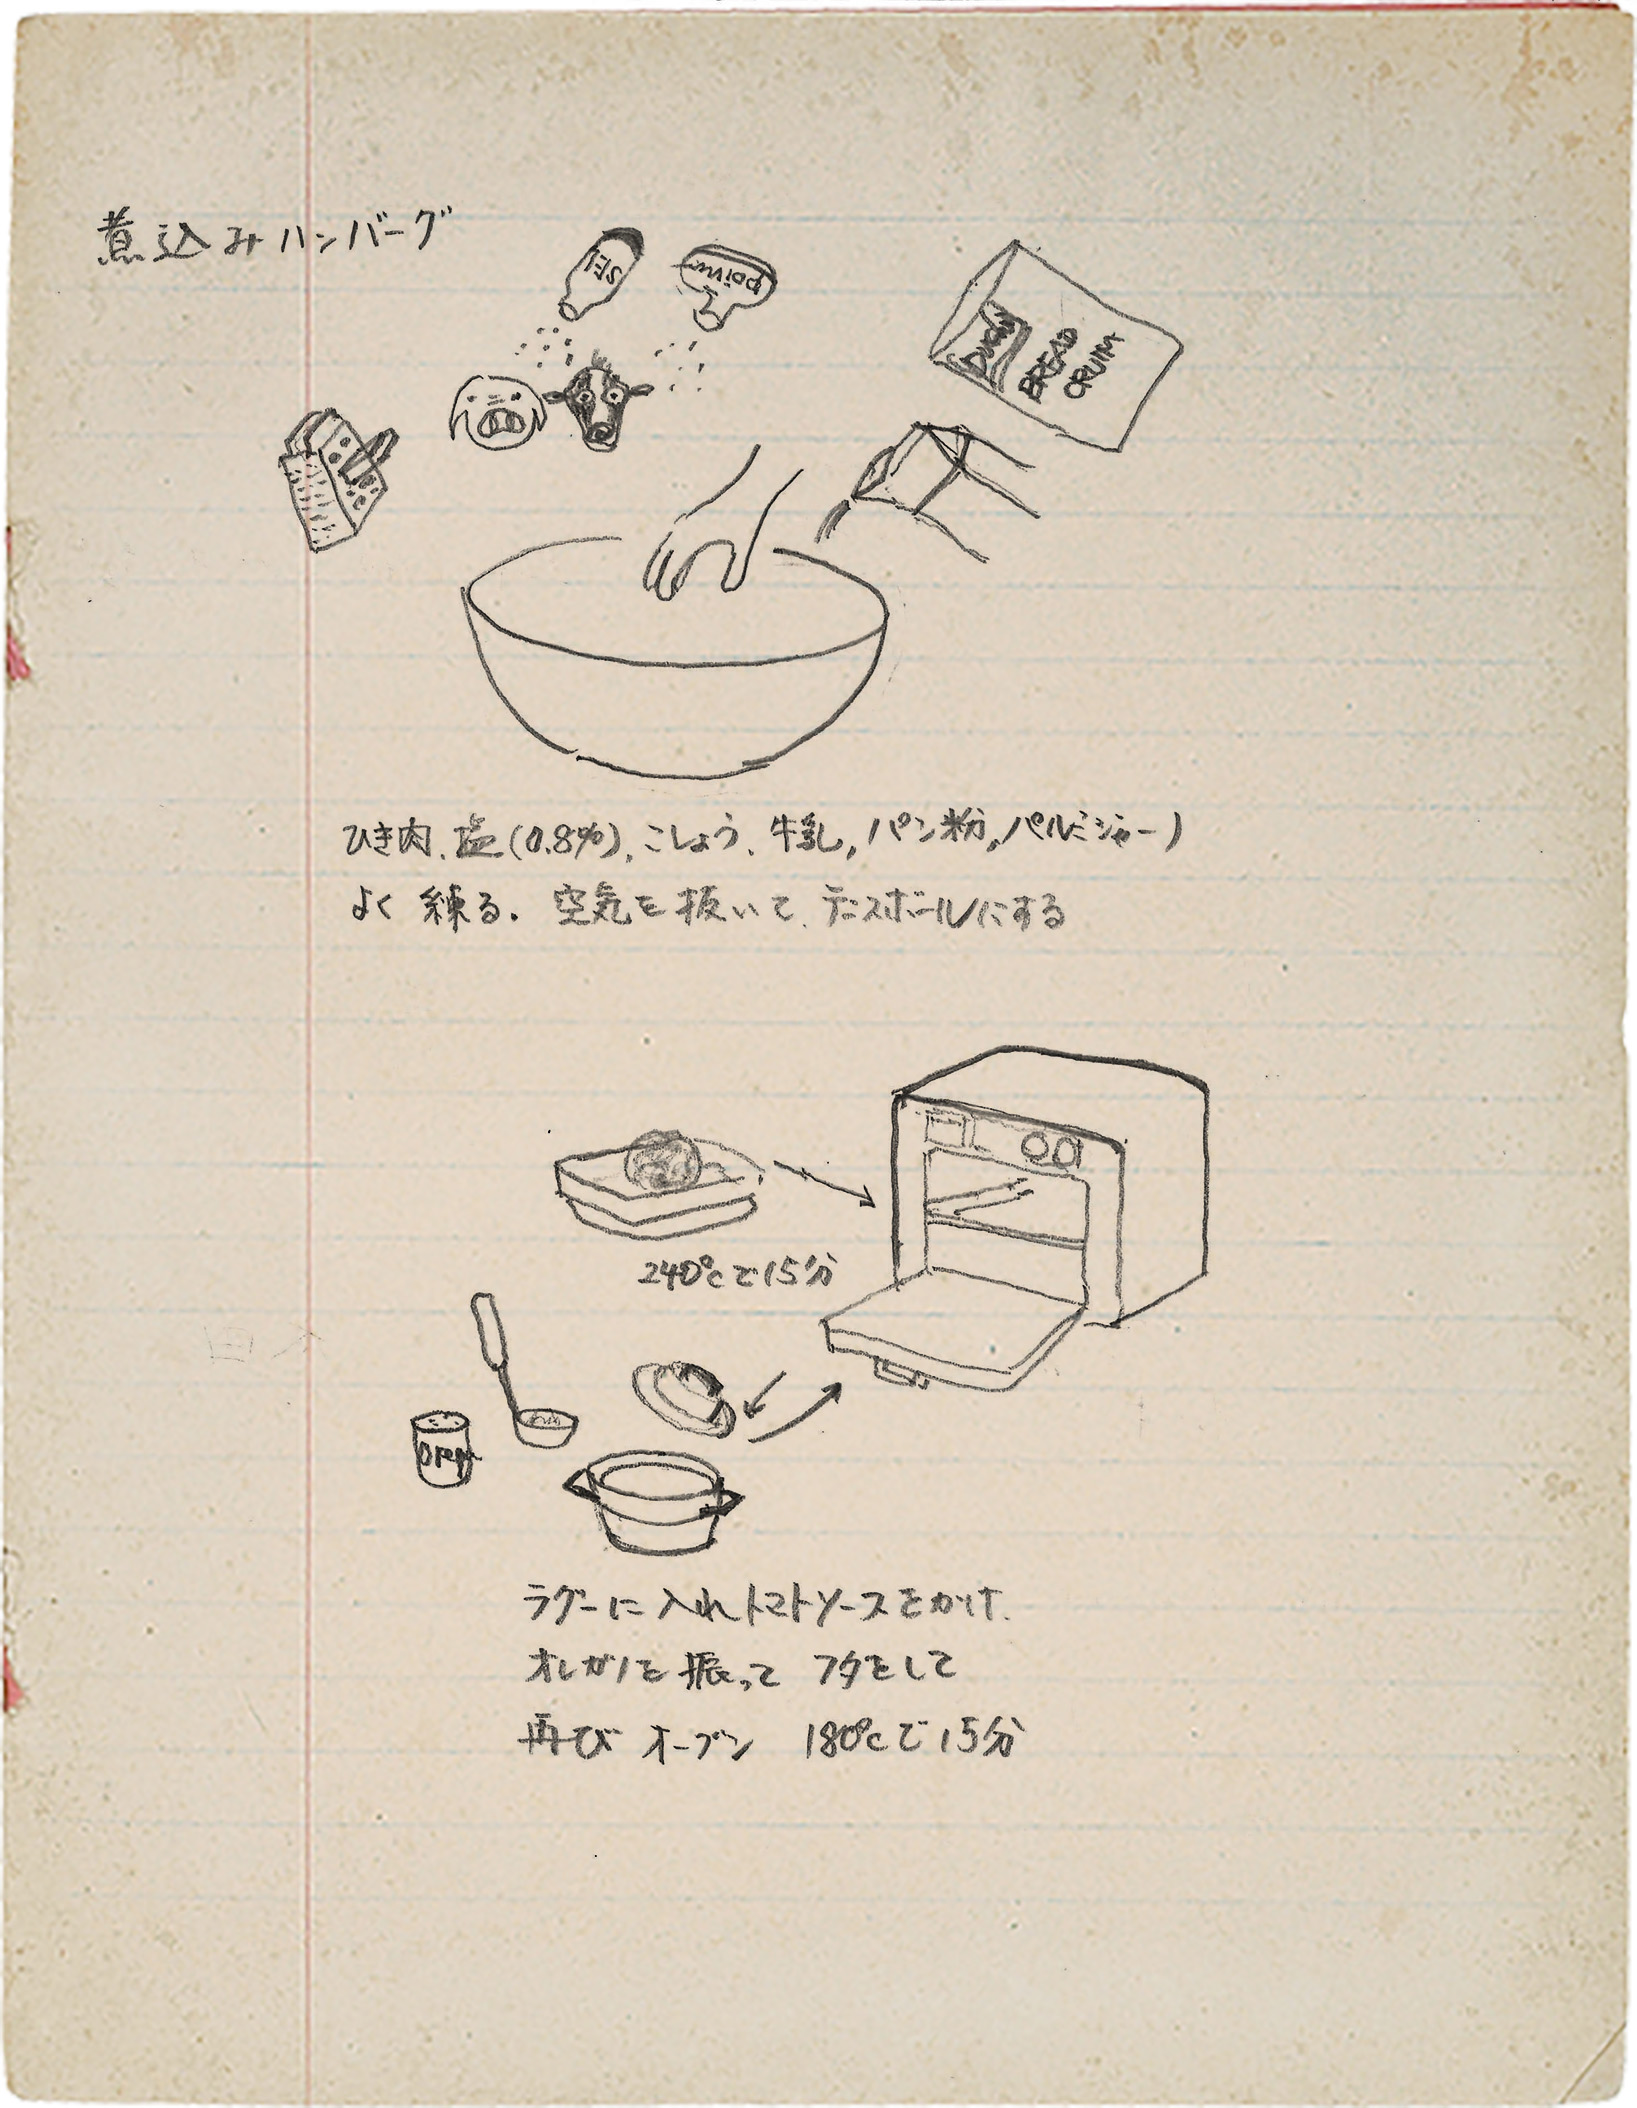 煮込みハンバーグ
SEL
poivre
BREAD
CRUM
ひき肉、塩(0.8%)、こしょう、牛乳、パン粉、パルミジャーノ
よく練る. 空気を抜いて、テニスボールにする
240℃で15分
Oreg
ラグーに入れトマトソースをかけ、
オレガノを振って フタをして
再び オーブン 180℃で15分